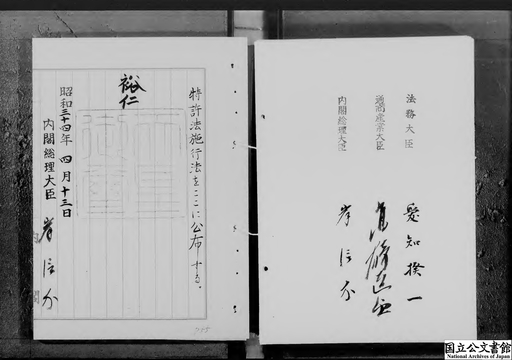 法務大臣 愛知揆一
通商産業大臣 高碕達之助
内閣総理大臣 岸信介
特許法施行法をここに公布する。
天皇
御璽
裕仁
昭和三十四年四月十三日
内閣総理大臣 岸信介
国立公文書館
National Archives of Japan